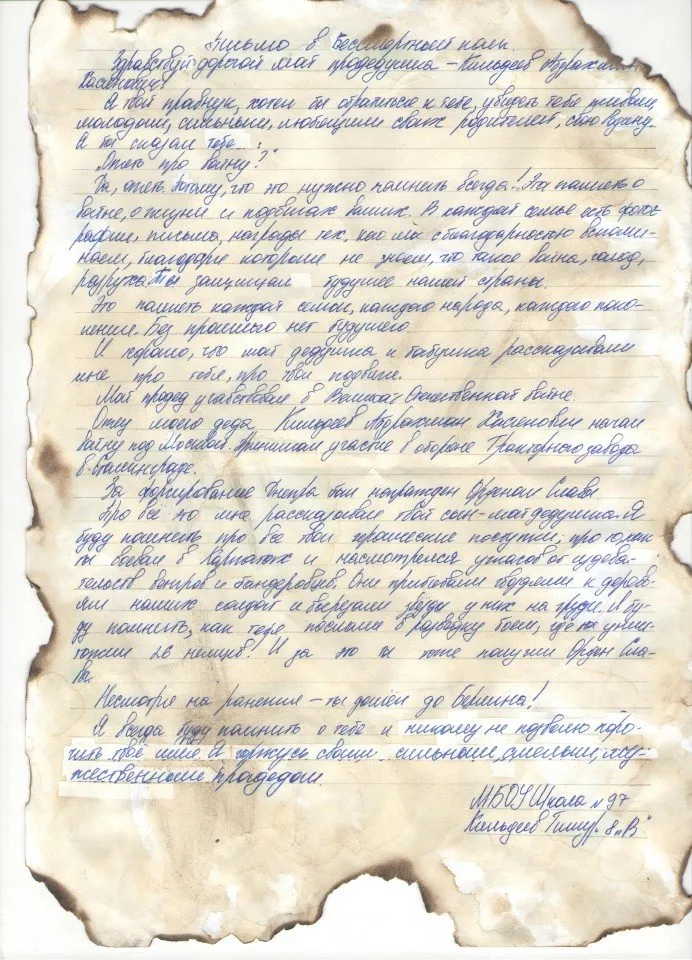 Письмо в Бессмертный полк.
Здравствуй дорогой мой прадедушка – Кильдеев Абдрахман
Хасенович!
Я твой правнук, хотел бы обратиться к тебе, увидеть тебя живым,
молодым, сильным, любящим своих родителей, свою Родину.
А ты сказал тебе:
"Опять про войну?"
Да, опять. Потому, что это нужно помнить всегда! Эта память о
войне, о жизни и подвигах ваших. В каждой семье есть фотог-
рафии, письма, награды тех, кого мы с благодарностью вспоми-
наем, благодаря которым не знаем, что такое война, голод,
разруха. Ты защищал будущее нашей страны.
Это память каждой семьи, каждого народа, каждого поко-
ления. Без прошлого нет будущего.
И хорошо, что мой дедушка и бабушка рассказывали
мне про тебя, про твои подвиги.
Мой прадед участвовал в Великой Отечественной войне.
Отец моего деда Кильдеев Абдрахман Хасенович начал
войну под Москвой. Принимал участие в обороне Тракторного завода
в Сталинграде.
За форсирование Днепра был награжден Орденом Славы
Про всё это мне рассказывал твой сын – мой дедушка. Я
буду помнить про все твои героические поступки, про то как
ты воевал в Карпатах и насмотрелся ужасов от издева-
тельств бандеровцев. Они прибивали гвоздями к деревь-
ям наших солдат и вырезали звёзды у них на груди. Я бу-
ду помнить, как тебя послали в разведку боем, где ты унич-
тожил 26 немцев! И за это ты тоже получил Орден Сла-
вы.
Несмотря на ранения – ты дошёл до Берлина!
Я всегда буду помнить о тебе и никому не позволю поро-
чить твоё имя. Я горжусь своим сильным, смелым, му-
жественным прадедом.
МБОУ Школа № 97
Кильдеев Тимур 8 "В"